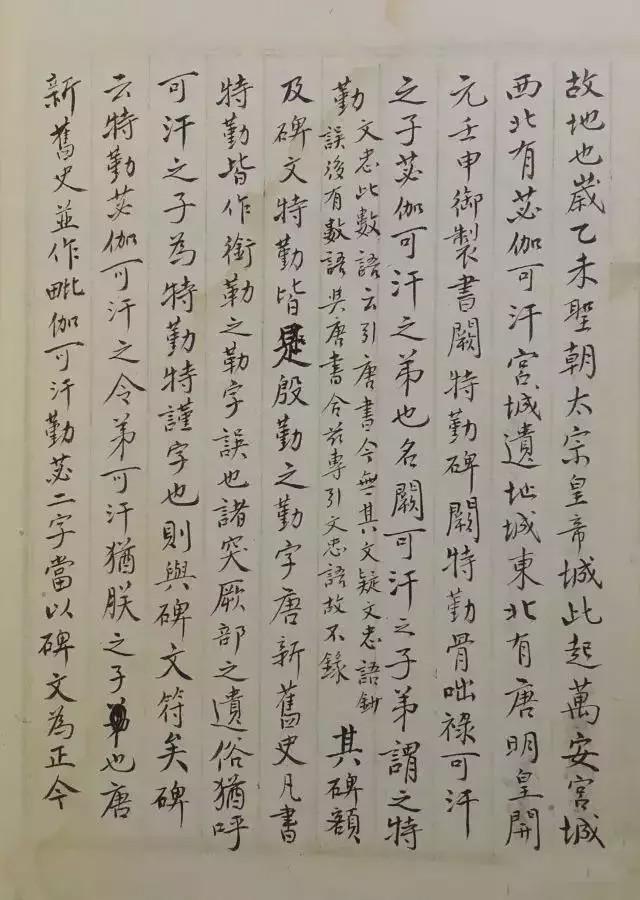 故地也歲乙未聖朝太宗皇帝城此起萬安宮城
西北有苾伽可汗宮城遺址城東北有唐明皇開
元壬申御製書闕特勤碑闕特勤骨咄祿可汗
之子苾伽可汗之弟也名闕可汗之子弟謂之特
勤
文忠此數語云引唐書今無其文疑文忠語鈔
誤後有數語吳唐書合茲專引文忠語故不錄
其碑額
及碑文特勤皆是殷勤之勤字唐新舊史凡書
特勤皆作銜勒之勒字誤也諸突厥部之遺俗猶呼
可汗之子為特勤特謹字也則與碑文符矣碑
云特勤苾伽可汗之令弟可汗猶朕之子也唐
新舊史並作毗伽可汗勤苾二字當以碑文為正今